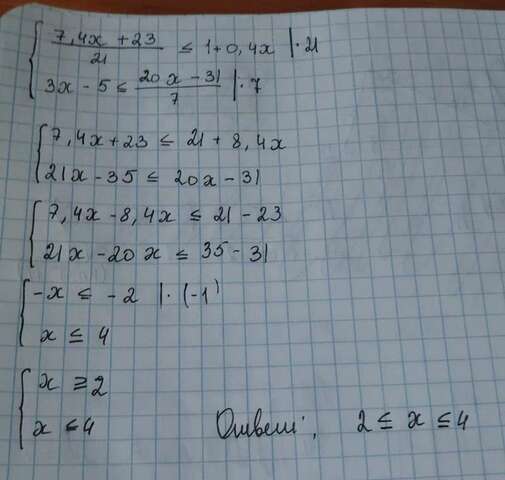 (7,4x + 23)/21 ≤ 1 + 0,4x |·21
3x - 5 ≤ (20x - 31)/7 |·7
7,4x + 23 ≤ 21 + 8,4x
21x - 35 ≤ 20x - 31
7,4x - 8,4x ≤ 21 - 23
21x - 20x ≤ 35 - 31
-x ≤ -2 |·(-1)
x ≤ 4
x ≥ 2
x ≤ 4 Ответ: 2 ≤ x ≤ 4